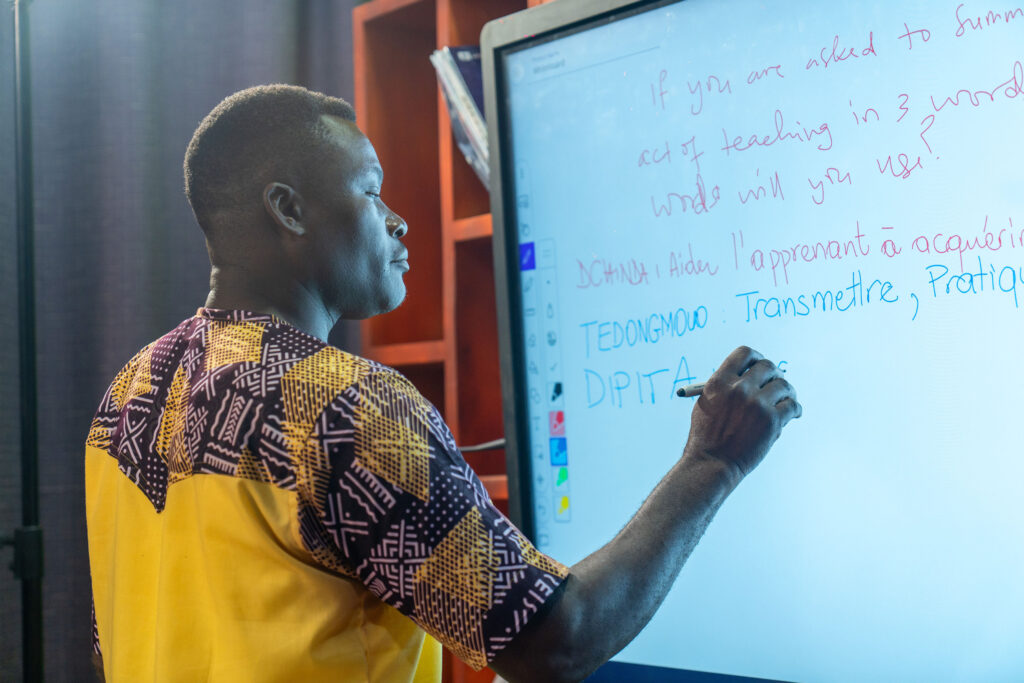 Whiteboard
If you are asked to summ
act of teaching in 3 words
words will you use?
DCHINDA: Aider l'apprenant à acquérir
TEDONGMOUO: Transmettre, Pratiqu
DIPITA